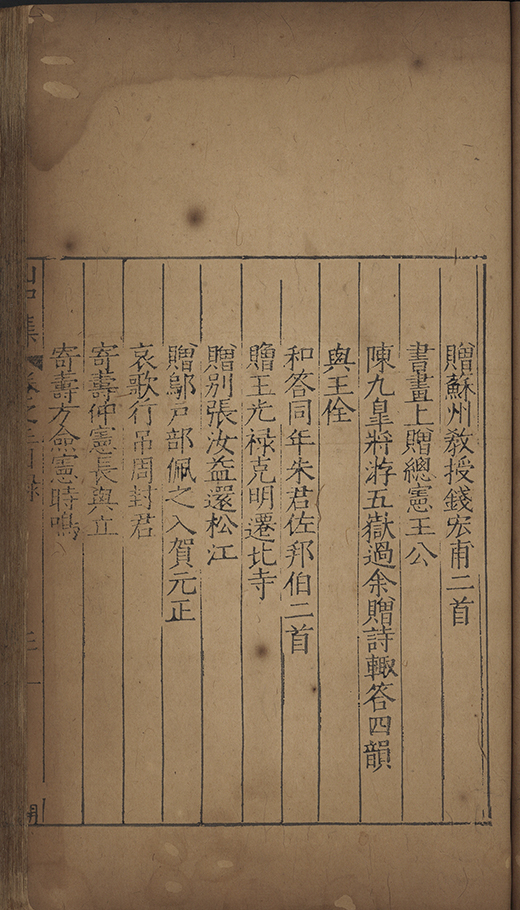 贈蘇州教授錢宏甫二首
書畫上贈總憲王公
陳九皐將游五嶽過余贈詩輙答四韻
與王佺
和答同年朱君佐邦伯二首
贈王光祿克明遷北寺
贈別張汝益還松江
贈鄔戸部佩之入賀元正
哀歌行吊周封君
寄壽仲憲長與立
寄壽方僉憲時鳴
集 卷之 目錄